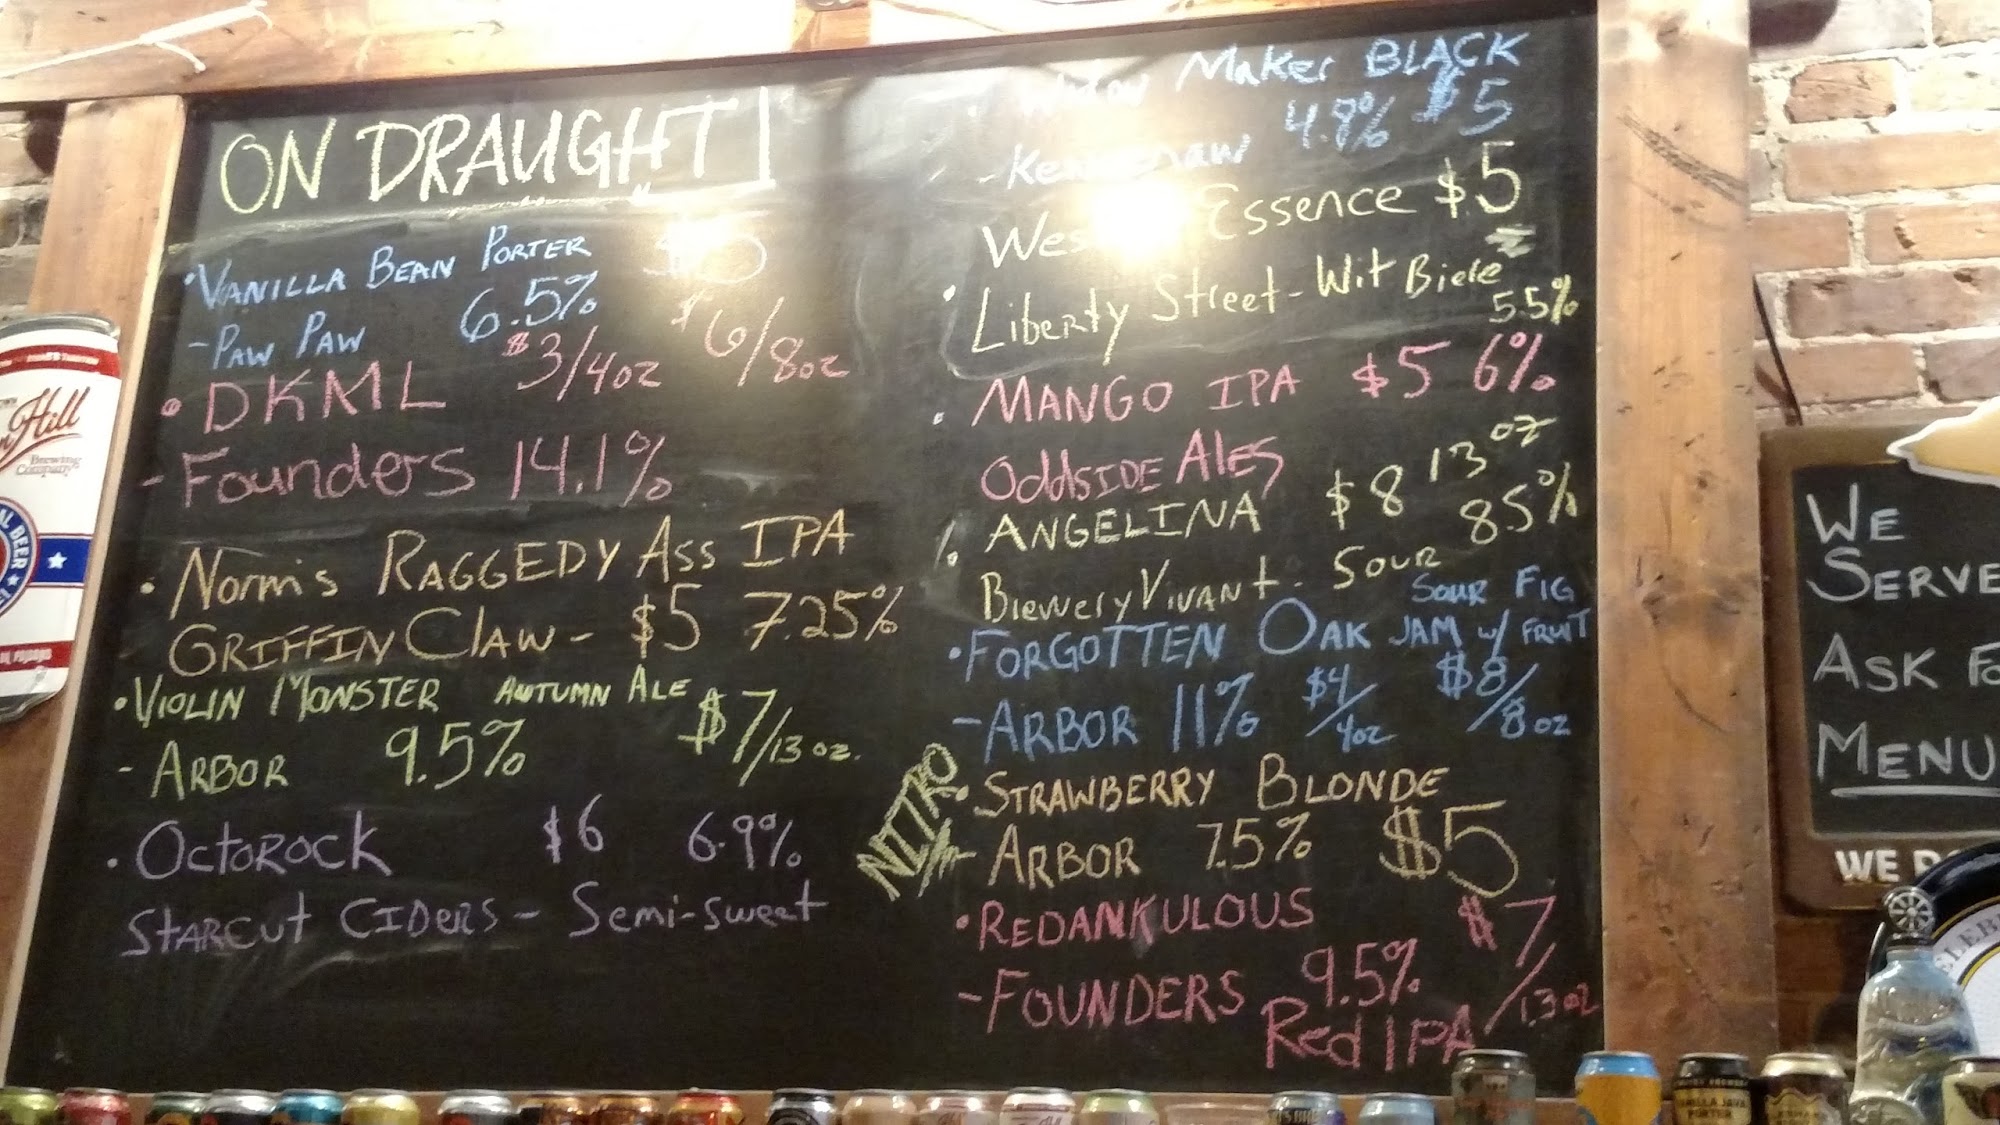 ON DRAUGHT!
• VANILLA BEAN PORTER $5
- PAW PAW 6.5%
• DKML $3/4oz $6/8oz
- Founders 14.1%
• Norm's RAGGEDY Ass IPA
GRIFFIN CLAW - $5 7.25%
• VIOLIN MONSTER AUTUMN ALE $7/13 oz.
- ARBOR 9.5%
• OCTOROCK $6 6.9%
STARCUT CIDERS - Semi-sweet
Widow Maker BLACK
- Keweenaw 4.8% $5
Essence $5
• Liberty Street - Wit Biere
5.5%
• MANGO IPA $5 6%
OddSIDE ALES
• ANGELINA $8 13 oz
Brewery Vivant - Sour 8.5%
• FORGOTTEN OAK SOUR FIG
JAM w/ FRUIT
- ARBOR 11% $4/4oz $8/8oz
NITRO
• STRAWBERRY BLONDE
- ARBOR 7.5% $5
• REDANKULOUS $7/13 oz
- FOUNDERS 9.5%
Red IPA
Hill
Brewing
Company
BEER
WE
SERVE
ASK
MENU
WE
VANILLA JAVA
PORTER